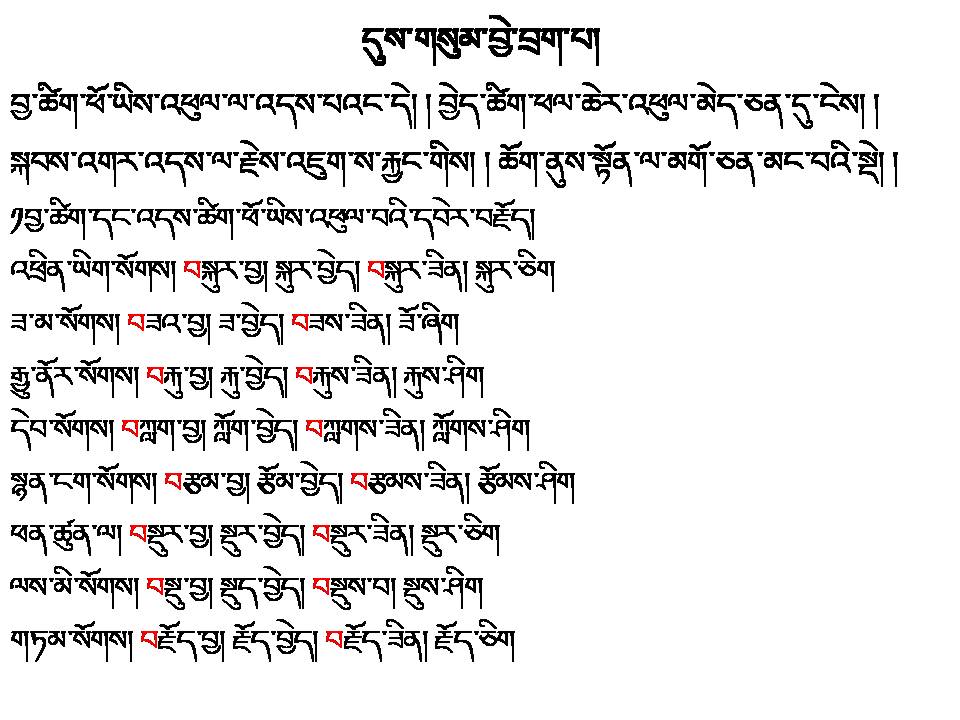 དུས་གསུམ་བྱེ་བྲག་པ།
བྱ་ཚིག་ཕོ་ཡིས་འཕུལ་ལ་འདས་པའང་དེ། ། བྱེད་ཚིག་ཕལ་ཆེར་འཕུལ་མེད་ཅན་དུ་ངེས། །
སྐབས་འགར་འདས་ལ་རྗེས་འཇུག་ས་རྐྱང་གིས། ། ཆོག་ནུས་སྟོན་ལ་མགོ་ཅན་མང་བའི་སྡེ། །
༡བྱ་ཚིག་དང་འདས་ཚིག་ཕོ་ཡིས་འཕུལ་བའི་དཔེར་བརྗོད།
འཕྲིན་ཡིག་སོགས། བསྐུར་བྱ། སྐུར་བྱེད། བསྐུར་ཟིན། སྐུར་ཅིག
ཟ་མ་སོགས། བཟའ་བྱ། ཟ་བྱེད། བཟས་ཟིན། ཟོ་ཞིག
རྒྱུ་ནོར་སོགས། བརྐུ་བྱ། རྐུ་བྱེད། བརྐུས་ཟིན། རྐུས་ཤིག
དེབ་སོགས། བཀླག་བྱ། ཀློག་བྱེད། བཀླགས་ཟིན། ཀློགས་ཤིག
སྙན་ངག་སོགས། བརྩམ་བྱ། རྩོམ་བྱེད། བརྩམས་ཟིན། རྩོམས་ཤིག
ཕན་ཚུན་ལ། བསྡུར་བྱ། སྡུར་བྱེད། བསྡུར་ཟིན། སྡུར་ཅིག
ལས་མི་སོགས། བསྡུ་བྱ། སྡུད་བྱེད། བསྡུས་པ། སྡུས་ཤིག
གཏམ་སོགས། བརྗོད་བྱ། རྗོད་བྱེད། བརྗོད་ཟིན། རྗོད་ཅིག